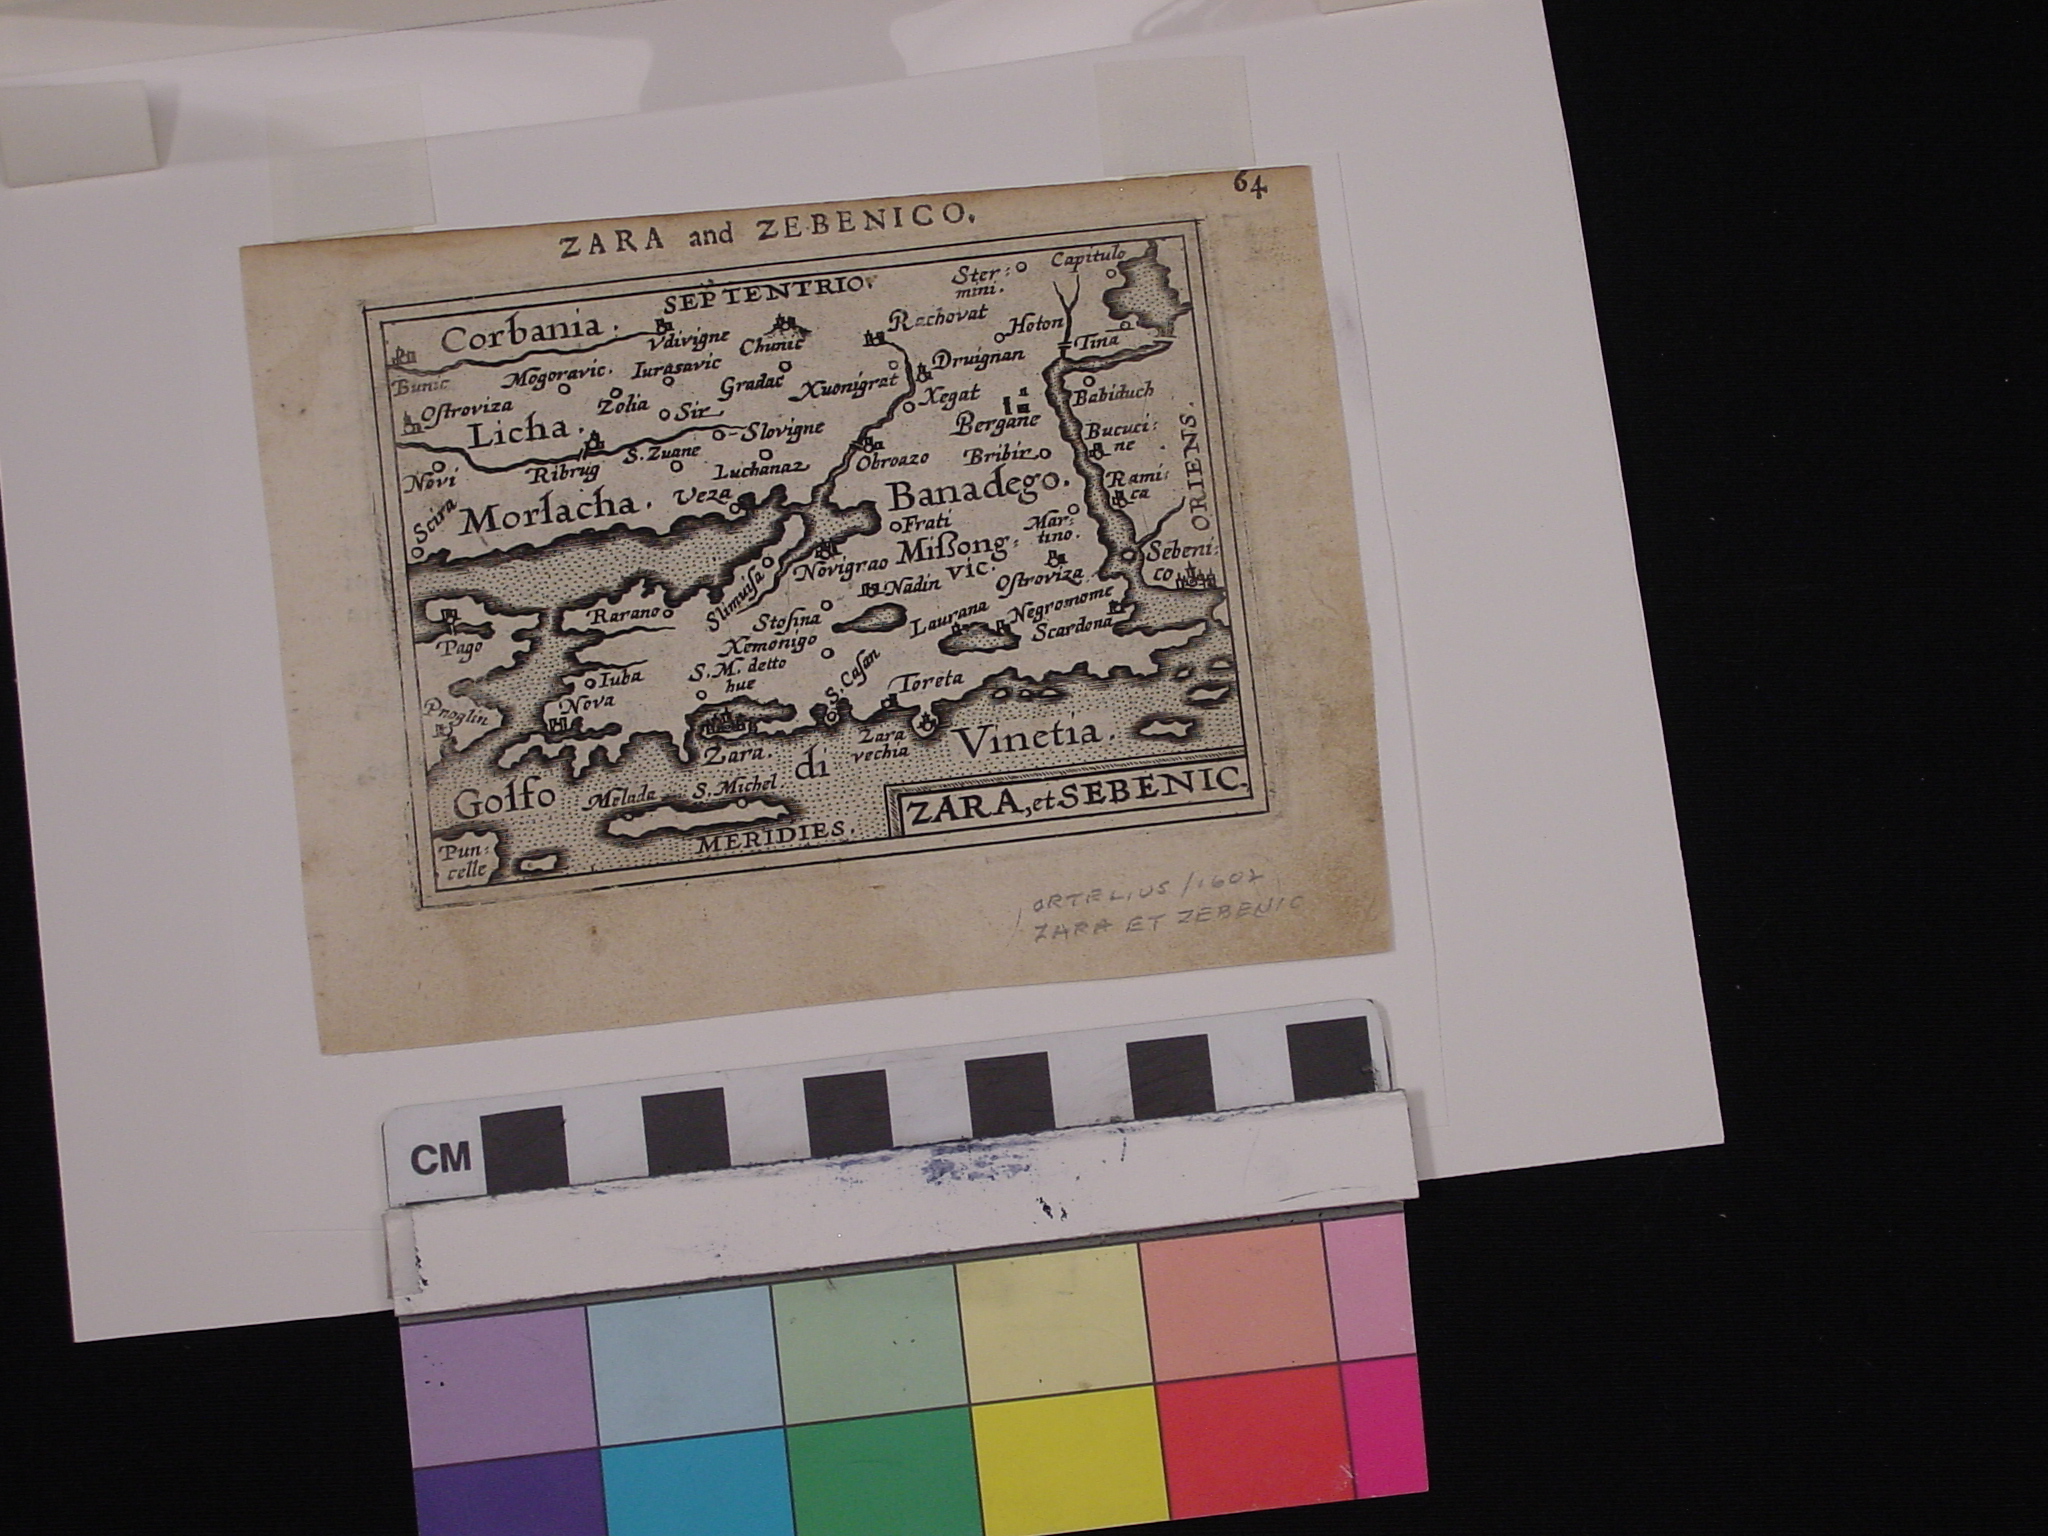 64
ZARA and ZEBENICO.
SEPTENTRIO.
Ster:
mini.
Capitulo
Corbania.
Vdivigne
Chunic
Rachovat
Hoton
Tina
Bunic
Mogoravic.
Iurasavic
Gradac
Xuonigrat
Druignan
Ostroviza
Zolia
Sir
Xegat
Babiduch
Licha.
Slovigne
Bergane
Bucuci:
ne
ORIENS.
Novi
Ribrug
S. Zuane
Luchanaz
Obroazo
Bribir
Rami:
ca
Scira
Morlacha.
Veza
Banadego.
Frati
Mar:
tino.
Novigrao
Missong:
vic.
Sebeni:
co
Slimuisa
Nadin
Ostroviza
Rarano
Stosina
Laurana
Negromome
Pago
Xemonigo
Scardona
S. M. detto
hue
S. Casan
Iuba
Toreta
Nova
Proglin
Zara.
Zara
vechia
Golfo di Vinetia.
Melada
S. Michel
ZARA, et SEBENIC.
MERIDIES.
Pun:
celle
ORTELIUS / 1602
ZARA ET ZEBENIC
CM